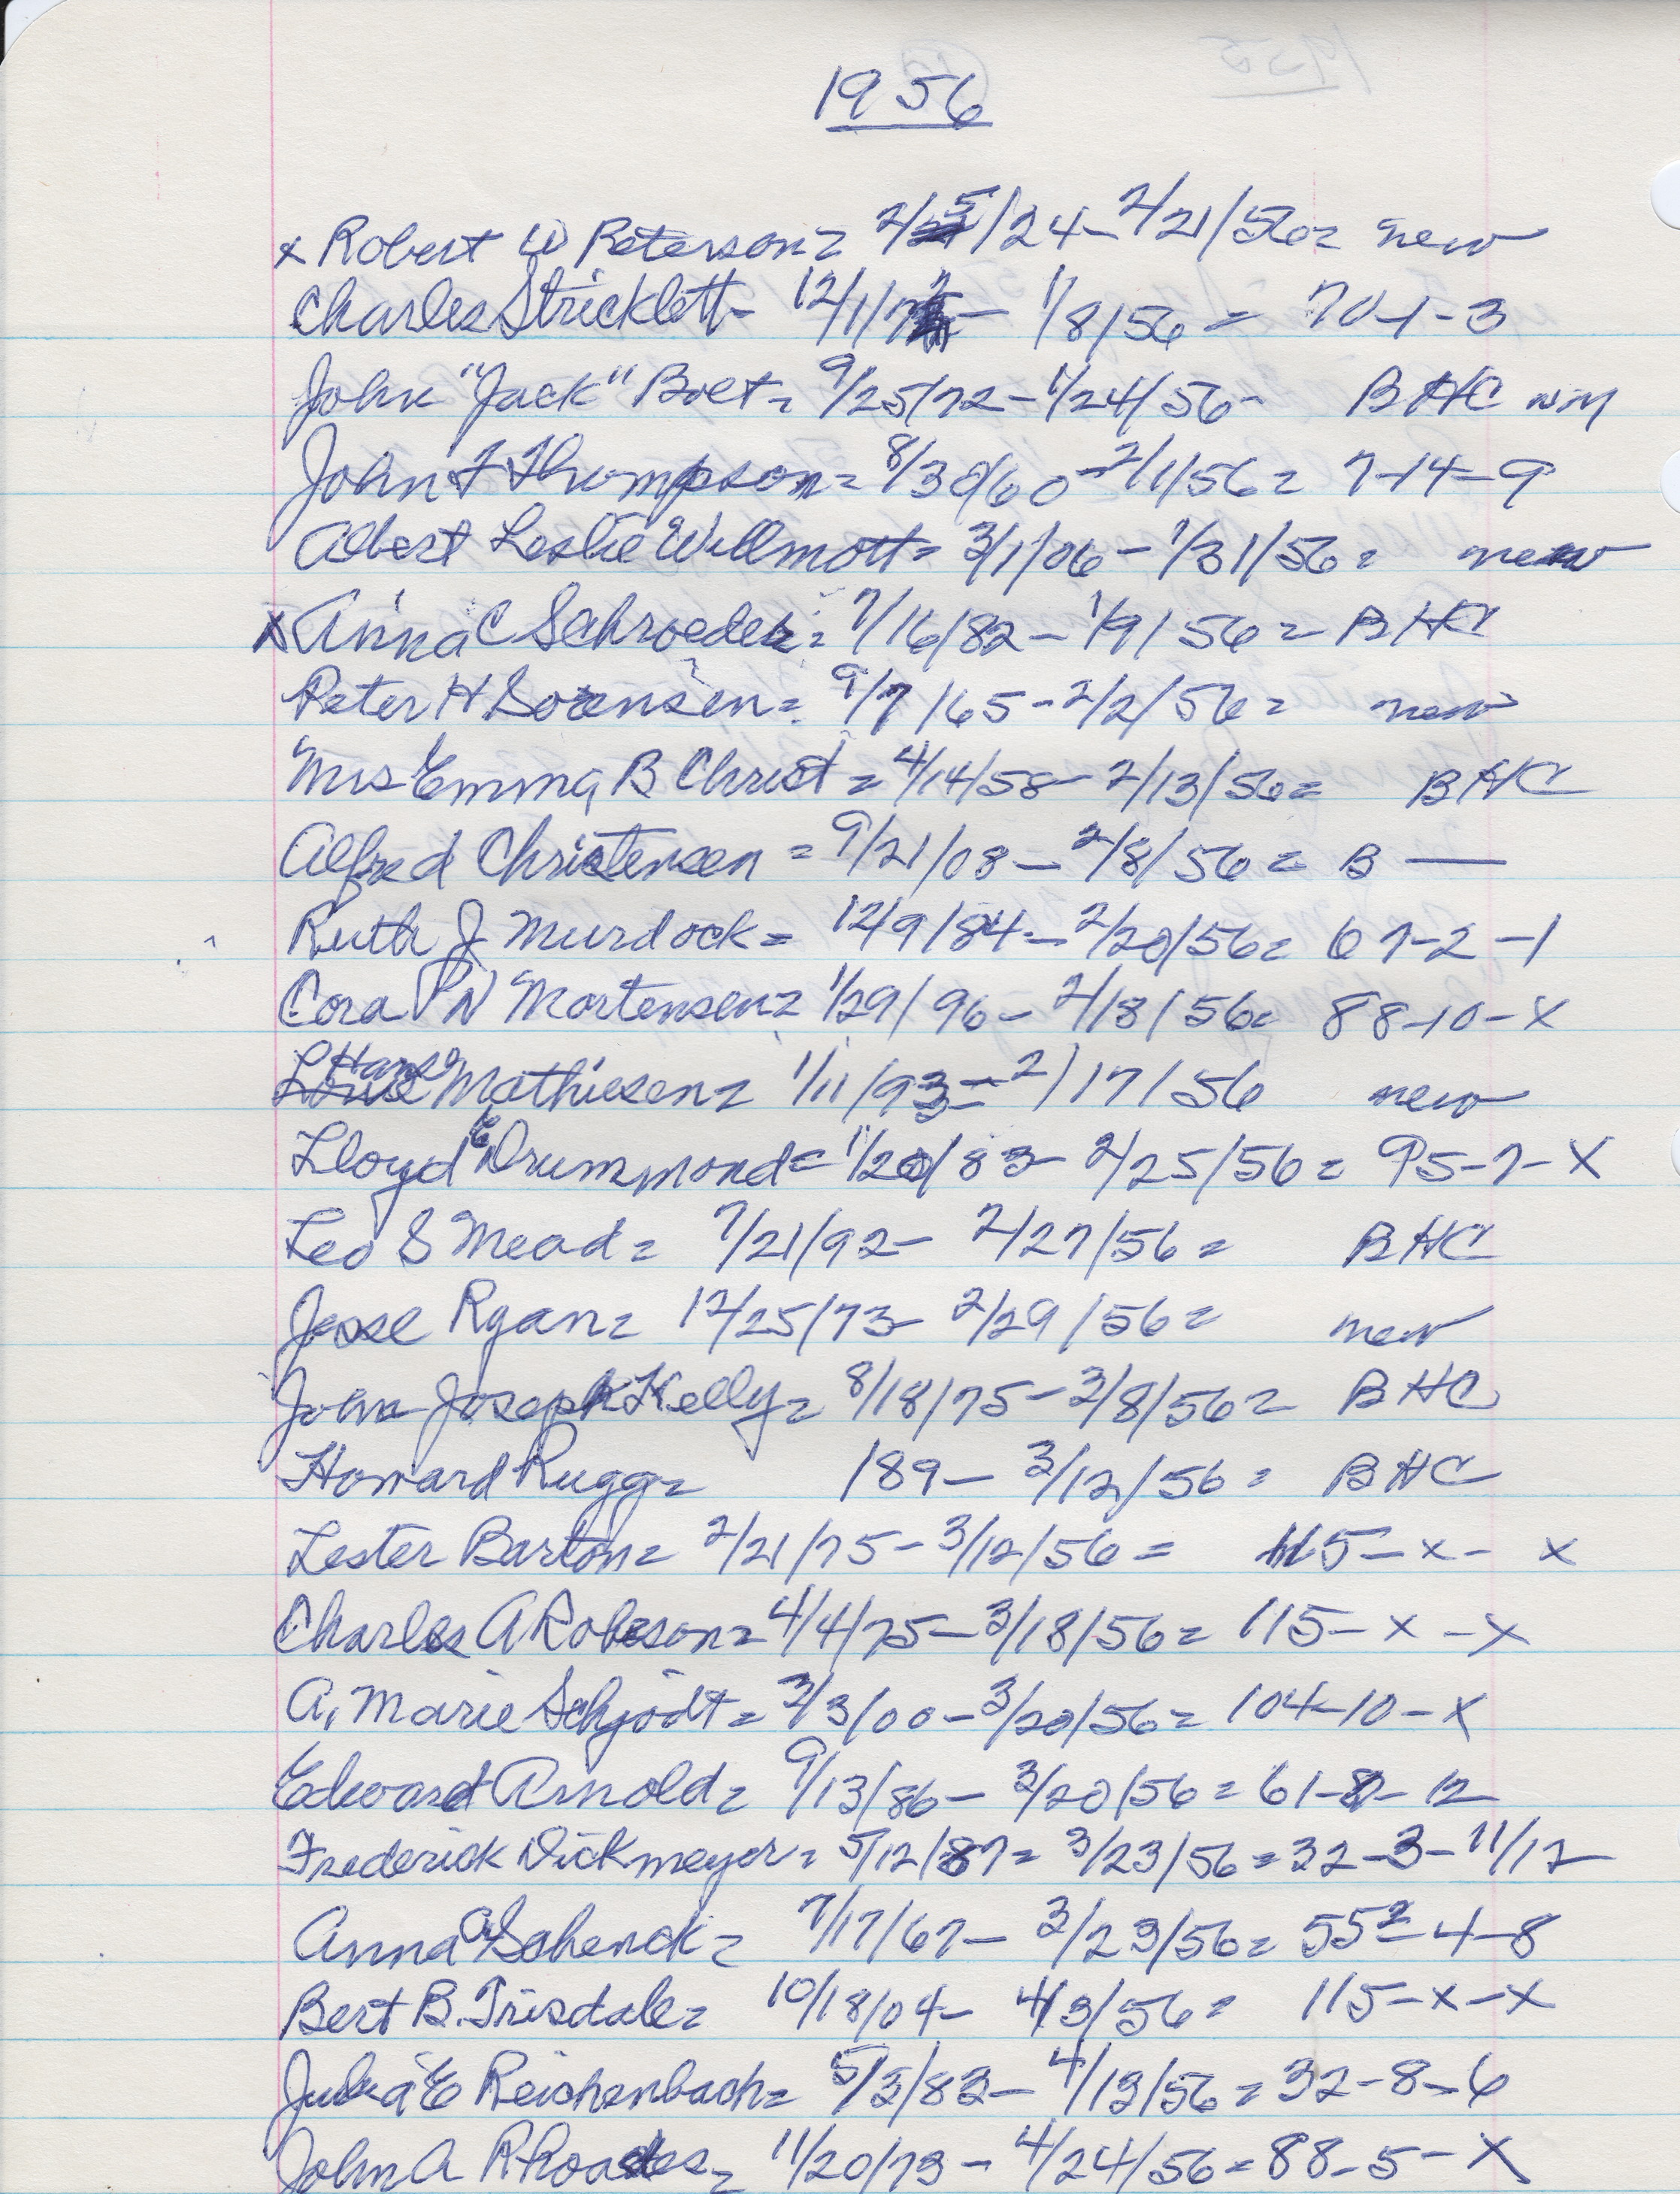 1956
x Robert W Peterson = 2/5/24 - 2/21/56 = new
Charles Stricklett - 12/1/7 - 1/8/56 = 70-1-3
John "Jack" Boet = 9/25/72 - 1/24/56 - BHC
John F Thompson = 8/30/60 - 2/1/56 = 7-14-9
Albert Leslie Willmott = 3/1/06 - 1/31/56 = new
x Anna C Schroeder = 7/16/82 - 1/9/56 = BHC
Peter H Sorensen = 9/7/65 - 2/2/56 = new
Mrs Emma B Christ = 4/14/58 - 2/13/56 = BHC
Alfred Christensen = 9/21/08 - 2/8/56 = B —
Ruth J Murdock = 12/9/84 - 2/20/56 = 67-2-1
Cora N Mortensen = 1/29/96 - 2/18/56 = 88-10-x
Hans Mathiesen = 1/11/93 = 2/17/56 new
Lloyd E Drummond = 1/20/83 - 2/25/56 = 95-7-X
Leo S Mead = 7/21/92 - 2/27/56 = BHC
Jesse Ryan = 12/25/73 - 2/29/56 = new
John Joseph Kelly = 8/18/75 - 3/8/56 = BHC
Howard Rugg = 189 - 3/12/56 = BHC
Lester Barton = 2/21/75 - 3/12/56 = 115-x-x
Charles A Robeson = 4/4/75 - 3/18/56 = 115-x-x
A. Marie Schjodt = 3/3/00 - 3/20/56 = 104-10-x
Edward Arnold = 9/13/86 - 3/20/56 = 61-8-12
Frederick Dickmeyer = 5/12/87 = 3/23/56 = 32-3-11/12
Anna A Schenck = 7/17/67 - 3/23/56 = 552-4-8
Bert B. Trisdale = 10/18/04 - 4/3/56 = 115-x-x
Julia E Reichenbach = 5/3/83 - 4/13/56 = 32-8-6
John A Rhoades = 11/20/73 - 4/24/56 = 88-5-X